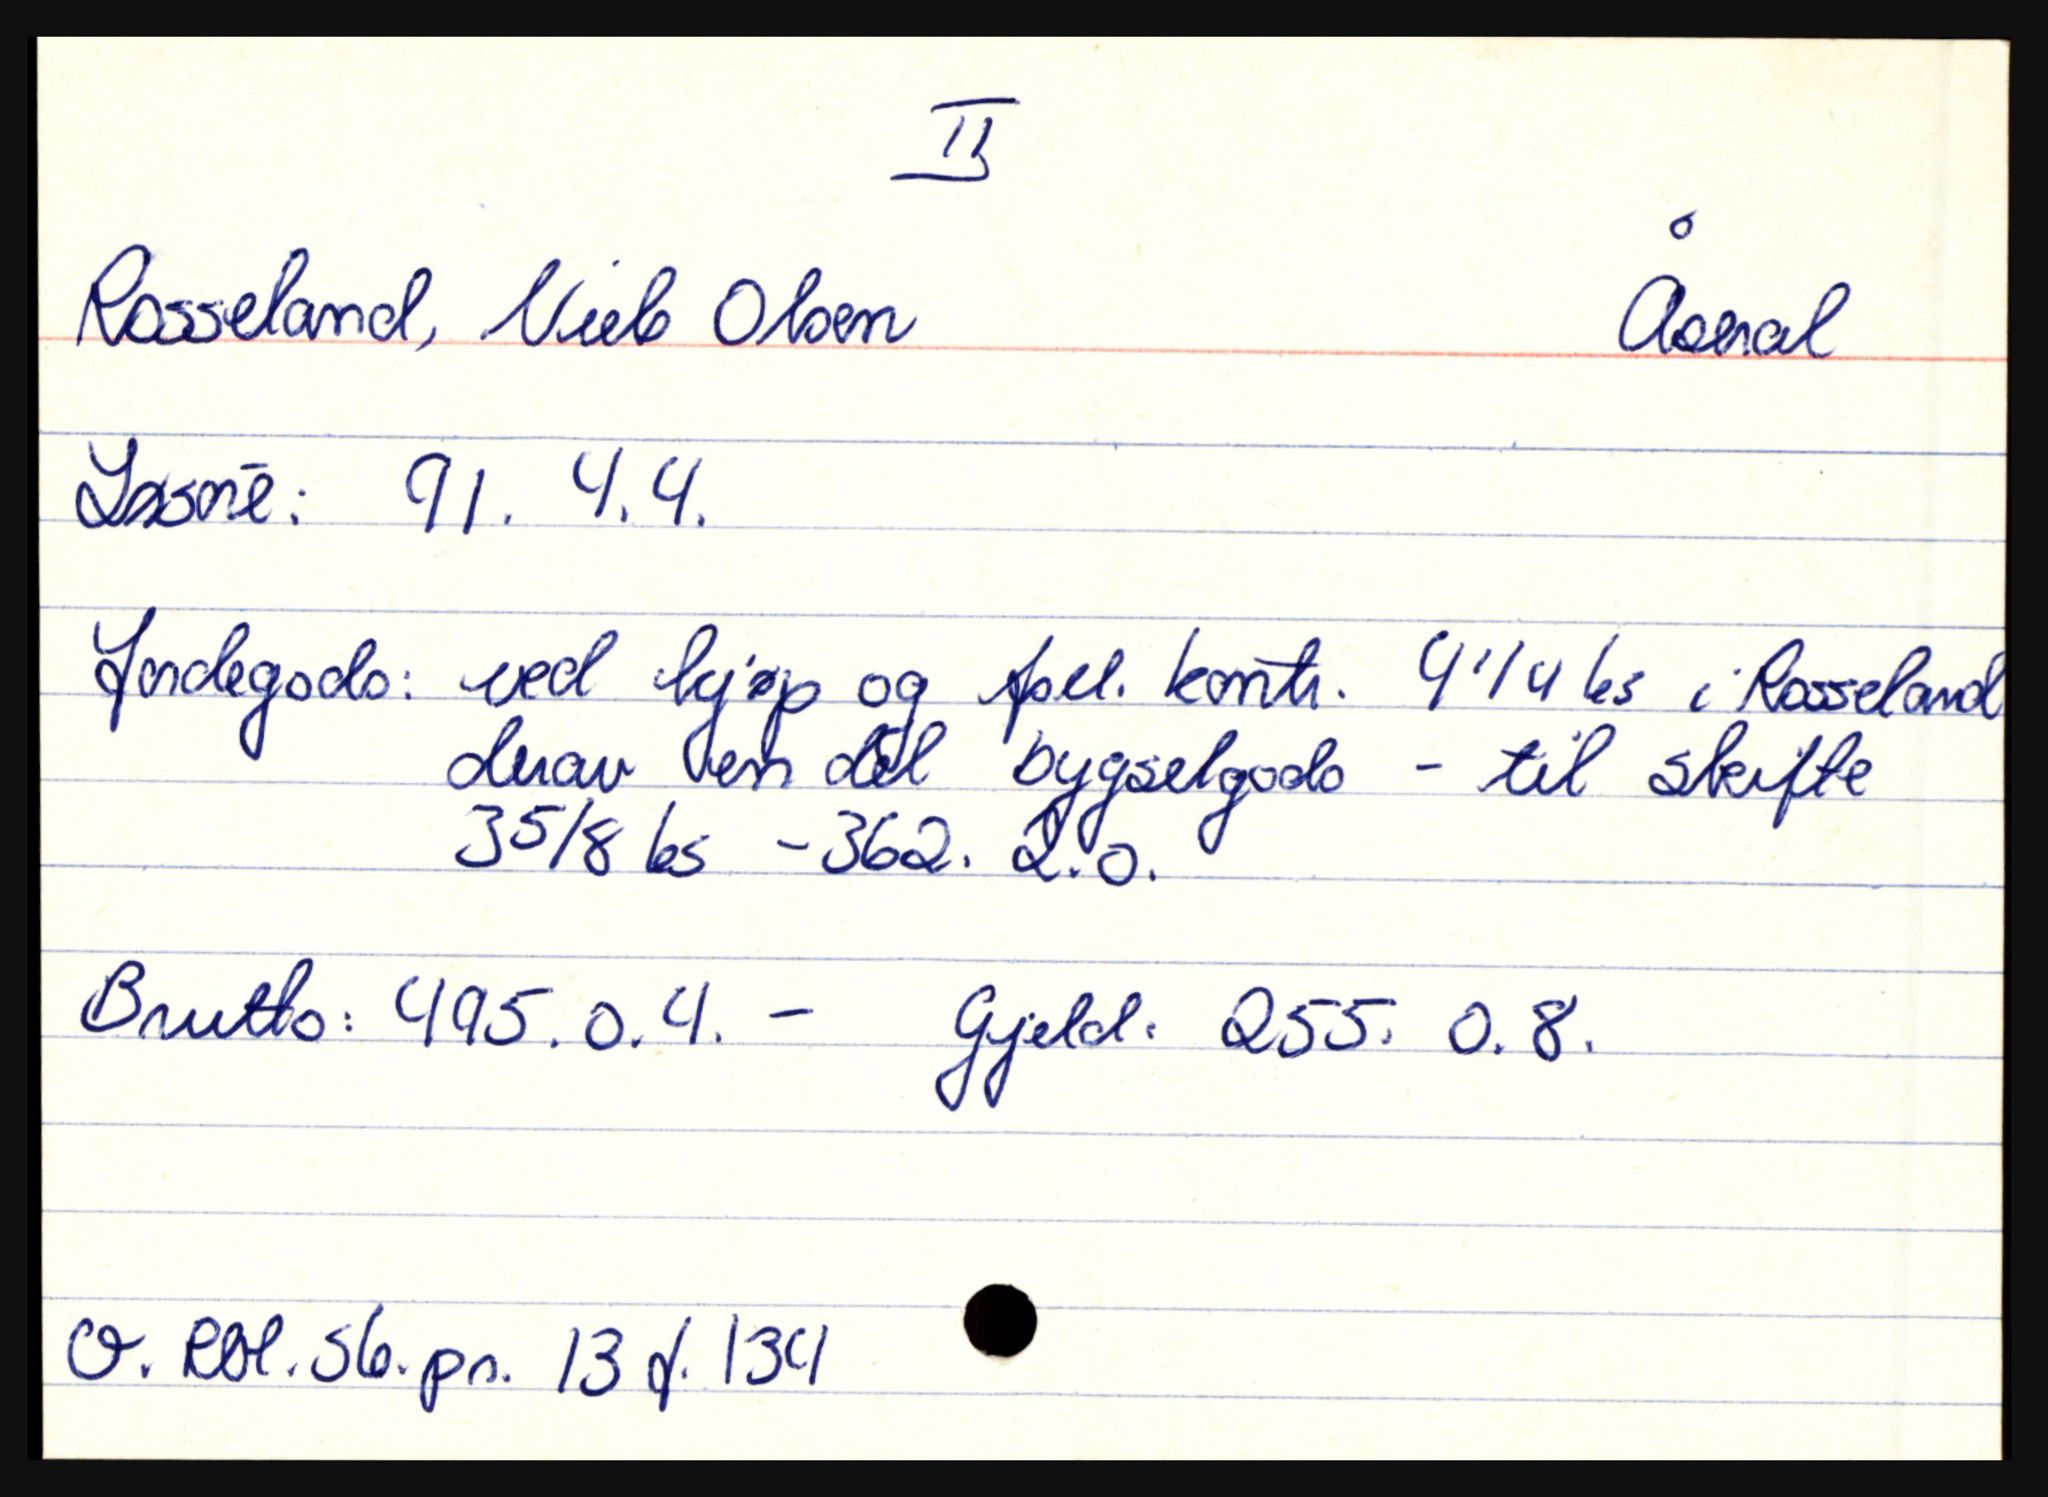 II
Rosseland, Niels Olsen Åseral
Løsøre: 91. 4. 4.
Jordegods: ved kjøp og fell. kontr. 4 1/4 ks i Rosseland
derav en del bygselgods - til skifte
3 5/8 ks - 362. 2. 0.
Brutto: 495. 0. 4. - Gjeld: 255. 0. 8.
O. Rbl. sb. pr. 13 f. 134